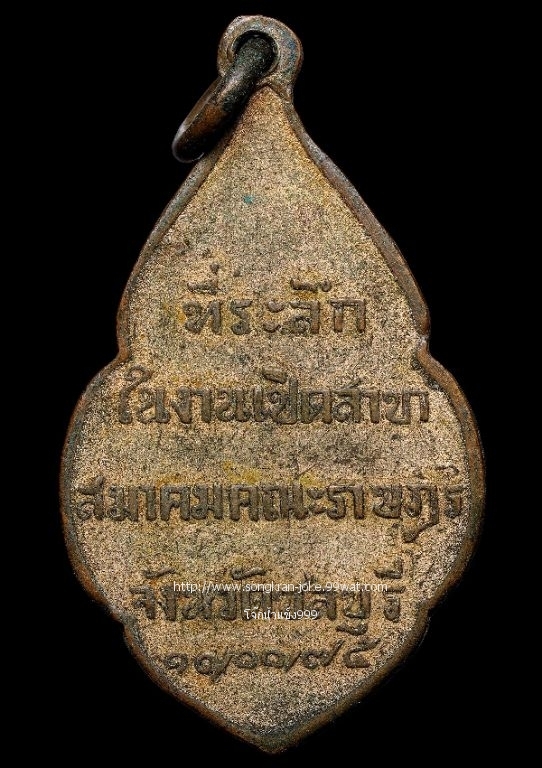 ที่ระลึก
ในงานเปิดสาขา
สมาคมคณะราษฎร์
http://www.songkran-joke.99wat.com
จังหวัดชลบุรี
โจ๊กน้ำแข็ง999